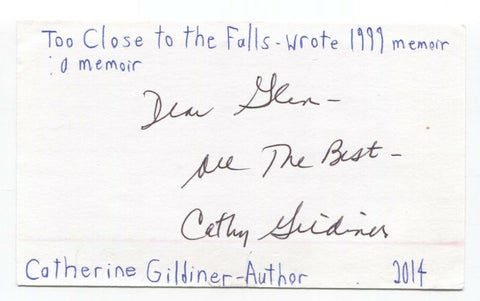 Too Close to the Falls - Wrote 1999 memoir
: a memoir
Dear Glen -
All The Best -
Cathy Gildiner
Catherine Gildiner - Author 2014